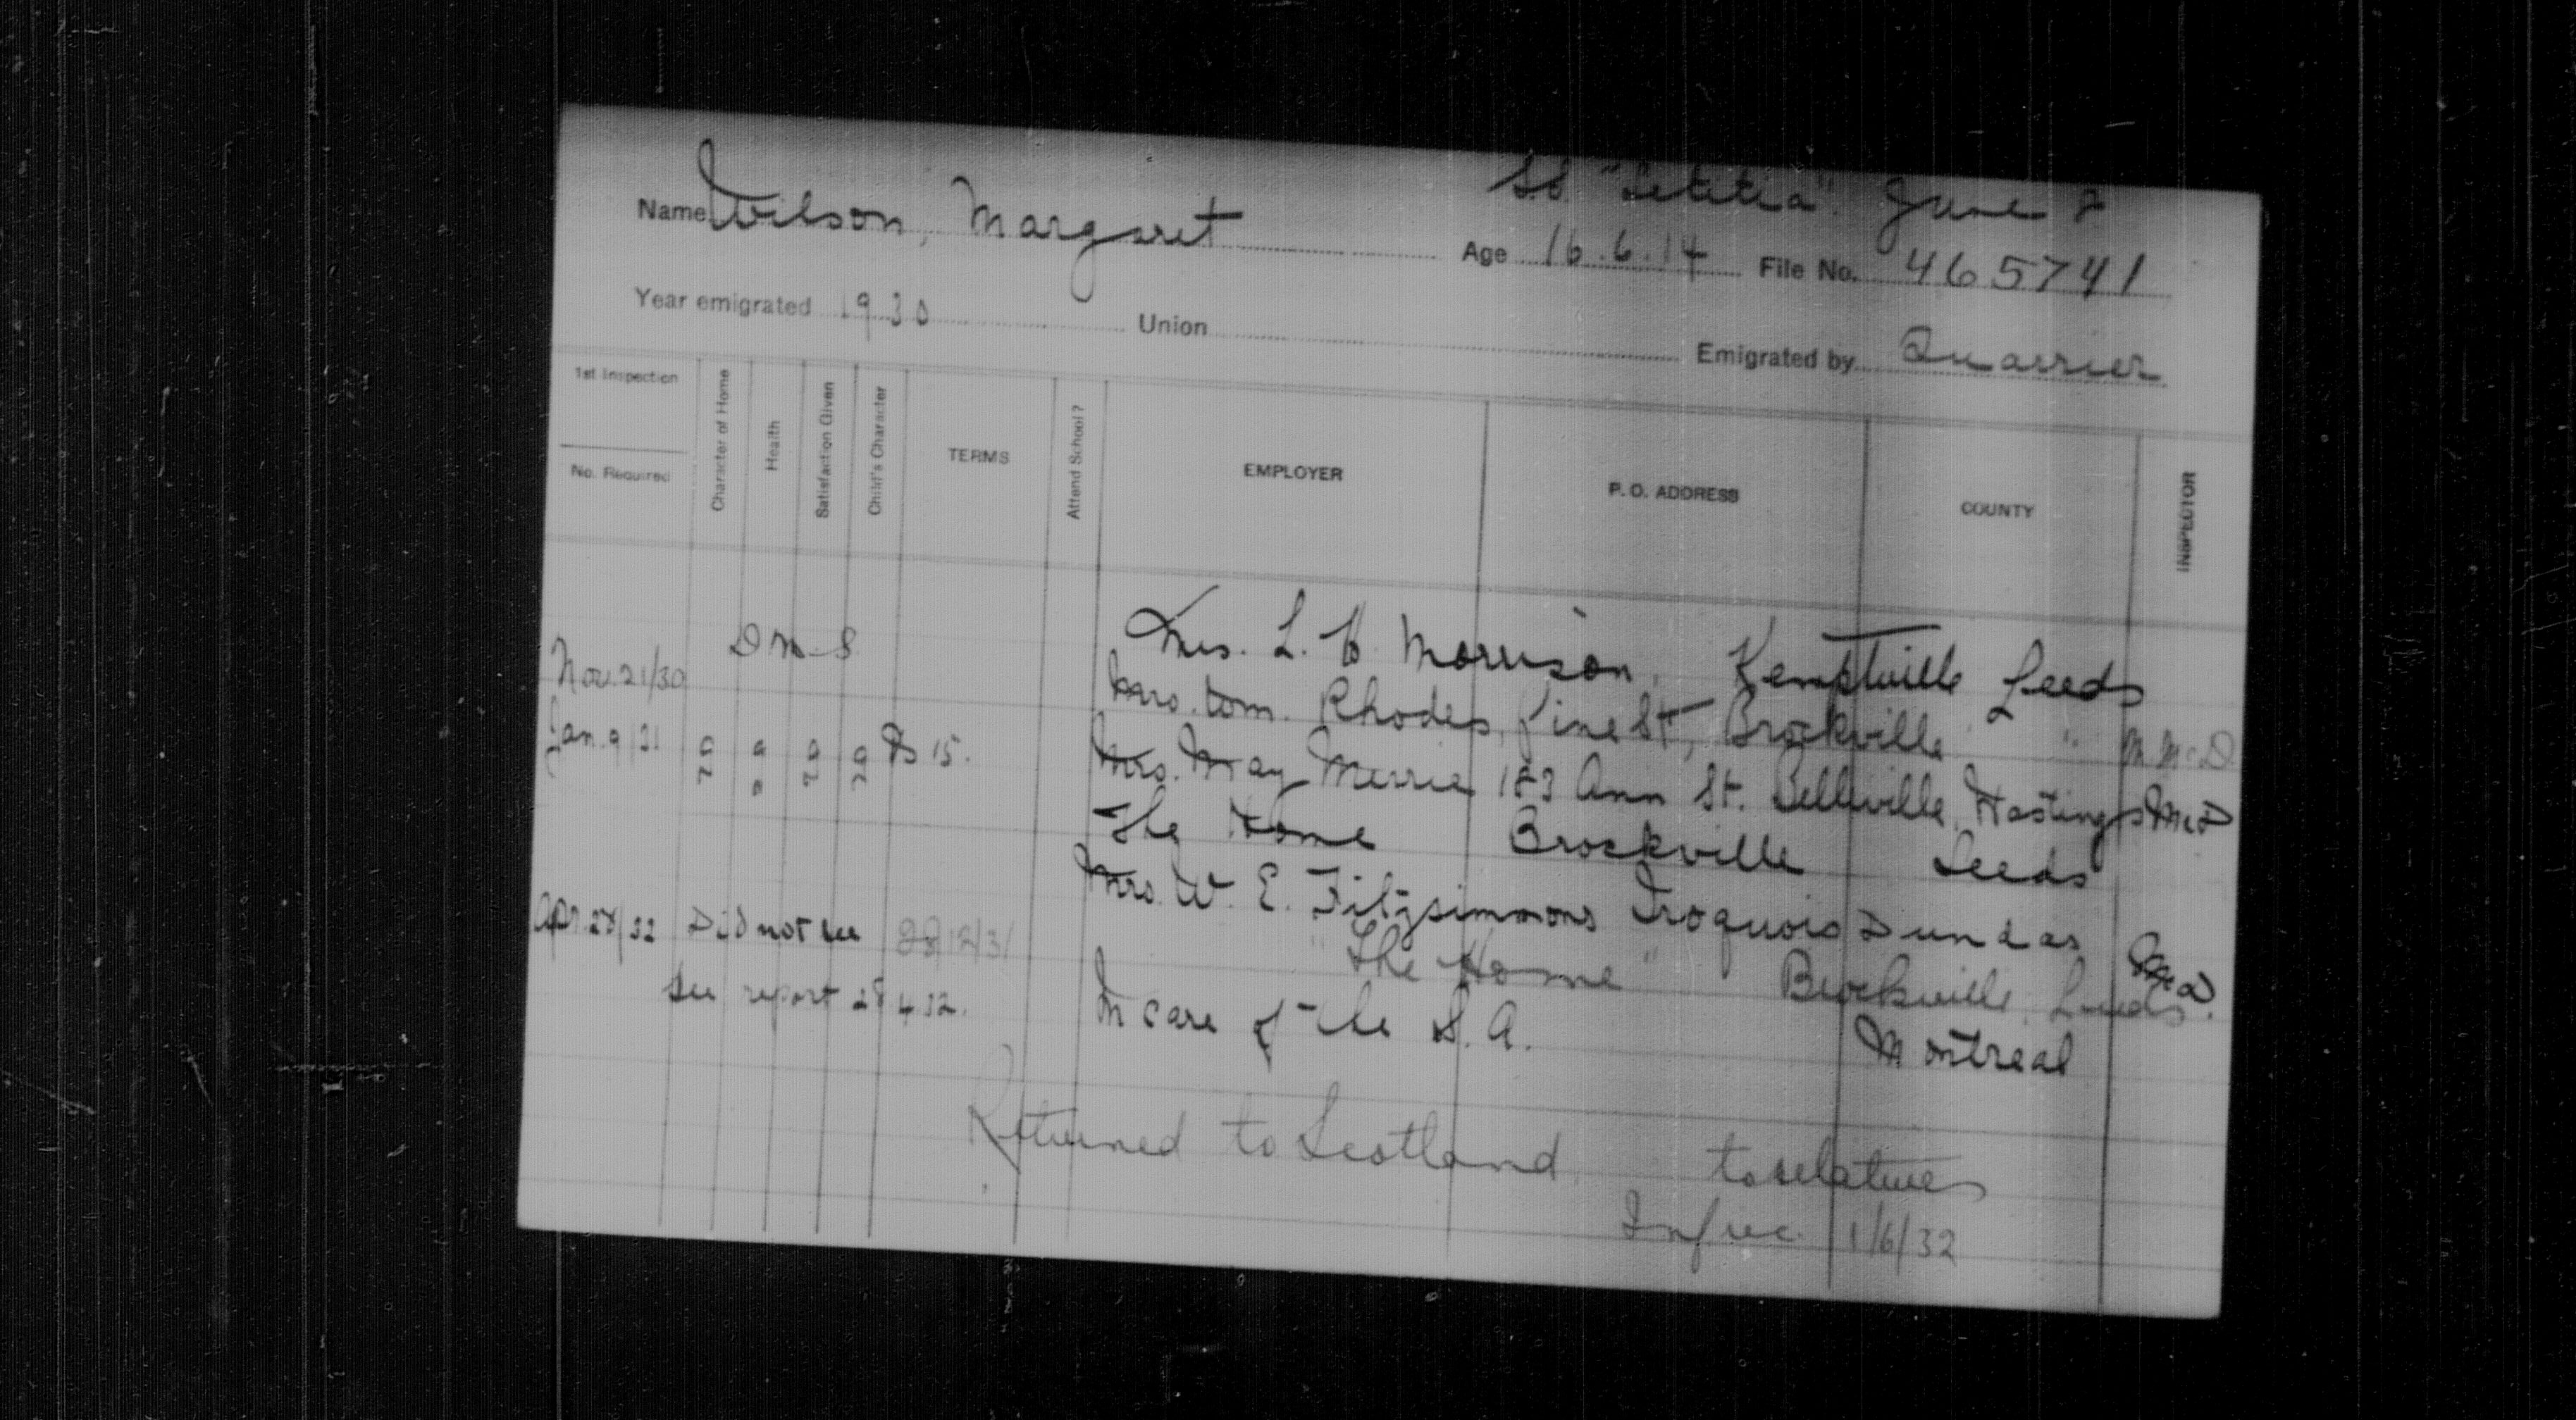 S.S. "Letitia". June 2
Name Wilson, Margaret Age 16.6.14 File No. 465741
Year emigrated 1930 Union Emigrated by Quarrier
1st Inspection
No. Required
Character of Home
Health
Satisfaction Given
Child's Character
TERMS
Attend School?
EMPLOYER
P. O. ADDRESS
COUNTY
INSPECTOR
D N S Mrs. L. H. Morrison, Kemptville Leeds
Nov. 21/30 Mrs. Tom. Rhodes, Pine St, Brockville " M McD
Jan. 9/31 15. Mrs. May Merrie 183 Ann St. Belleville, Hastings McD
The Home Brockville Leeds
Mrs. W. E. Fitzsimmons Iroquois Dundas
Apr. 28/32 Did not see 12/31 "The Home" Brockville, Leeds. McD
See report 28 4 32. In care of the S. A. Montreal
Returned to Scotland to relatives
Inf rec. 1/6/32